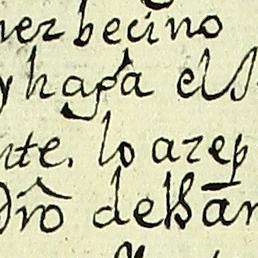 nez becino
y haga el S
nte. lo azep
drō de Bar